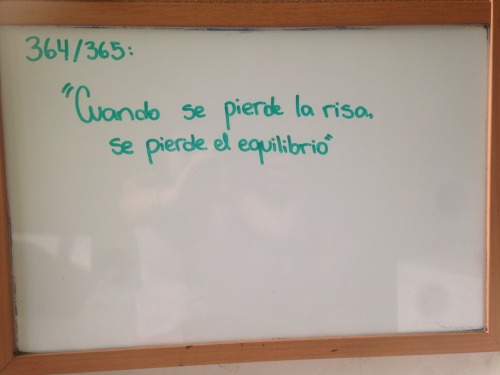 364/365:
"Cuando se pierde la risa,
se pierde el equilibrio"